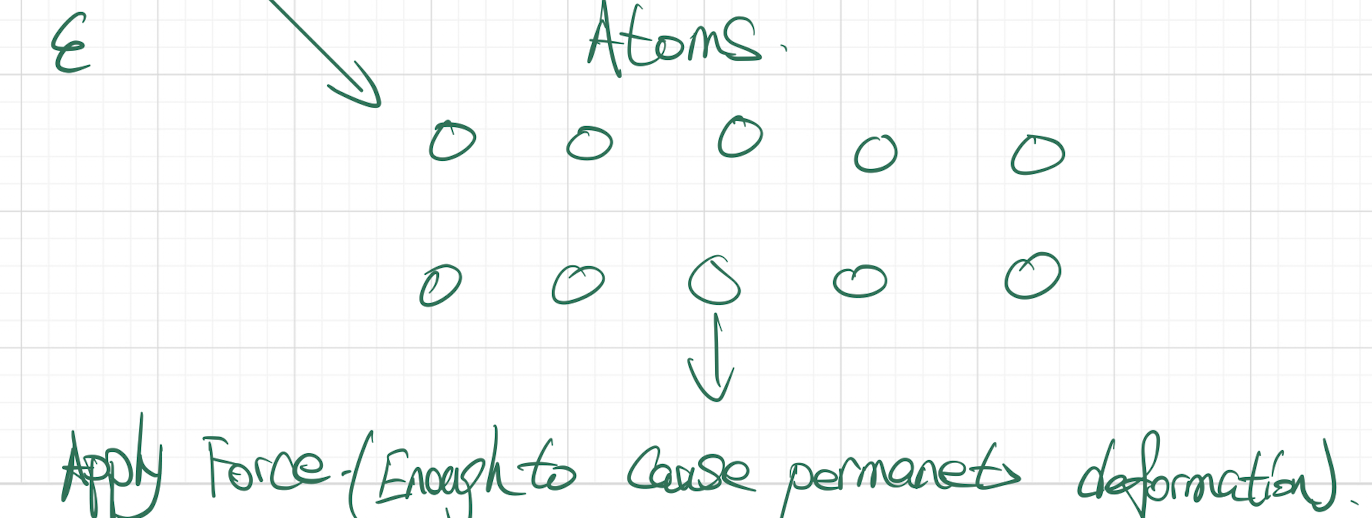 ε
Atoms.
Apply Force-(Enough to cause permanets deformation).